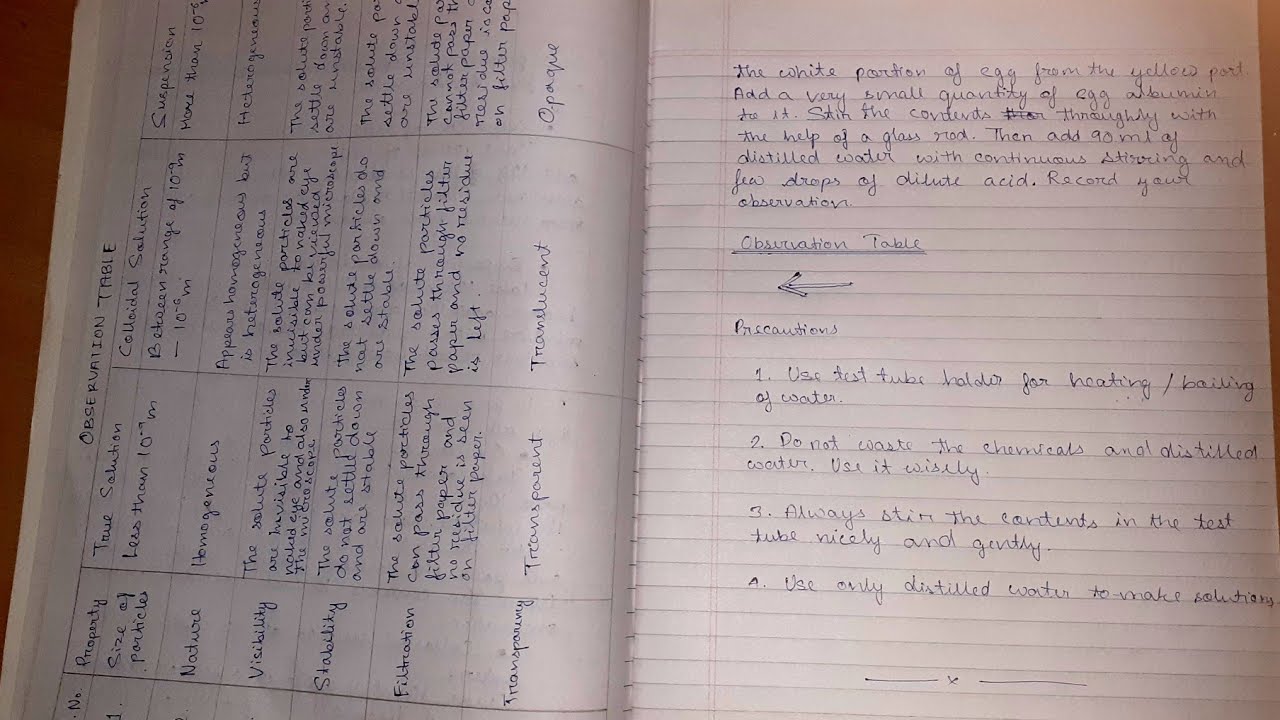 OBSERVATION TABLE
. No.
Property
True Solution
Colloidal Solution
Suspension
1.
Size of
particles
Less than 10⁻⁹ m
Between range of 10⁻⁹ m
– 10⁻⁶ m
More than 10⁻⁶
Nature
Homogeneous
Appears homogeneous but
is heterogeneous
Heterogeneous
Visibility
The solute particles
are invisible to
naked eye and also under
the microscope.
The solute particles are
invisible to naked eye
but can be viewed
under powerful microscope
The solute
settle down
are unstable.
Stability
The solute particles
do not settled down
and are stable
The solute particles do
not settle down and
are stable.
The solute
settle down
are unstable
Filtration
The solute particles
can pass through
filter paper and
no residue is seen
on filter paper.
The solute particles
passes through filter
paper and no residue
is left.
The solute
cannot pass
filter paper
residue is
on filter
Transparency
Transparent
Translucent
Opaque
the white portion of egg from the yellow part.
Add a very small quantity of egg albumin
to it. Stir the contents throughly with
the help of a glass rod. Then add 90 ml of
distilled water with continuous stirring and
few drops of dilute acid. Record your
observation.
Observation Table
Precautions
1. Use test tube holder for heating / boiling
of water.
2. Do not waste the chemicals and distilled
water. Use it wisely.
3. Always stir the contents in the test
tube nicely and gently.
4. Use only distilled water to make solutions
x